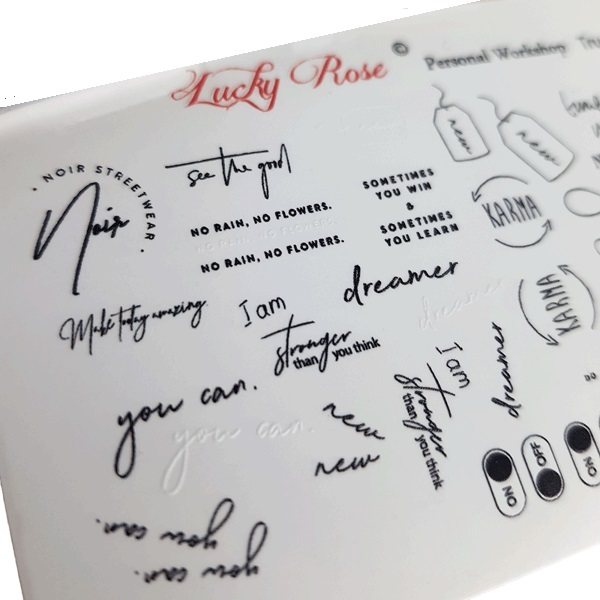 Lucky Rose ©
Personal Workshop
NOIR STREETWEAR
Noir
see the good
NO RAIN, NO FLOWERS.
NO RAIN, NO FLOWERS.
NO RAIN, NO FLOWERS.
SOMETIMES
YOU WIN
&
SOMETIMES
YOU LEARN
new
new
KARMA
KARMA
Make today amazing
I am
stronger
than you think
dreamer
dreamer
dreamer
I am
stronger
than you think
you can.
you can.
new
new
ON
OFF
ON
you can.
you can.